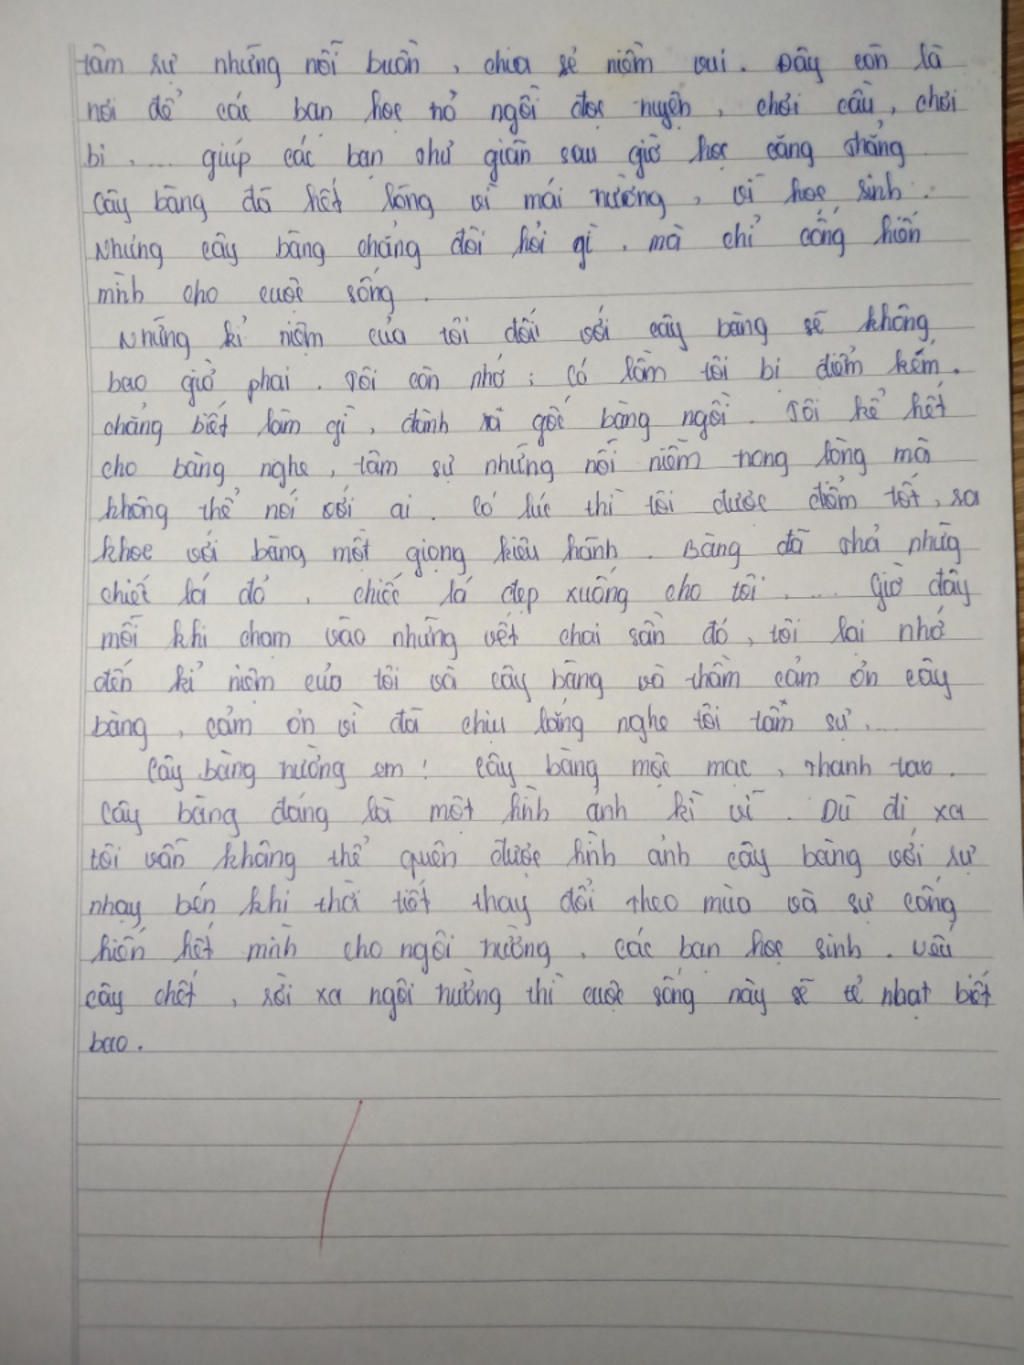 tâm sự những nỗi buồn, chia sẻ niềm vui. Đây còn là
nơi để các bạn học trò ngồi đọc truyện, chơi cầu, chơi
bi, ... giúp các bạn thư giãn sau giờ học căng thẳng
Cây bàng đã hết lòng vì mái trường, vì học sinh.
Nhưng cây bàng chẳng đòi hỏi gì, mà chỉ cống hiến
mình cho cuộc sống.
Những kỉ niệm của tôi đối với cây bàng sẽ không
bao giờ phai. Tôi còn nhớ: Có lần tôi bị điểm kém.
chẳng biết làm gì, đành ra gốc bàng ngồi. Tôi kể hết
cho bàng nghe, tâm sự những nỗi niềm trong lòng mà
không thể nói với ai. Có lúc thì tôi được điểm tốt, ra
khoe với bàng một giọng kiêu hãnh. Bàng đã thả những
chiếc lá đỏ, chiếc lá đẹp xuống cho tôi. ... Giờ đây
mỗi khi chạm vào những vết chai sần đó, tôi lại nhớ
đến kỉ niệm của tôi và cây bàng và thầm cảm ơn cây
bàng, cảm ơn vì đã chịu lắng nghe tôi tâm sự....
Cây bàng trường em! Cây bàng mộc mạc, thanh tao.
Cây bàng đáng là một hình ảnh kì vĩ. Dù đi xa
tôi vẫn không thể quên được hình ảnh cây bàng với sự
nhạy bén khi thời tiết thay đổi theo mùa và sự cống
hiến hết mình cho ngôi trường, các bạn học sinh. Nếu
cây chết, rời xa ngôi trường thì cuộc sống này sẽ tẻ nhạt biết
bao.